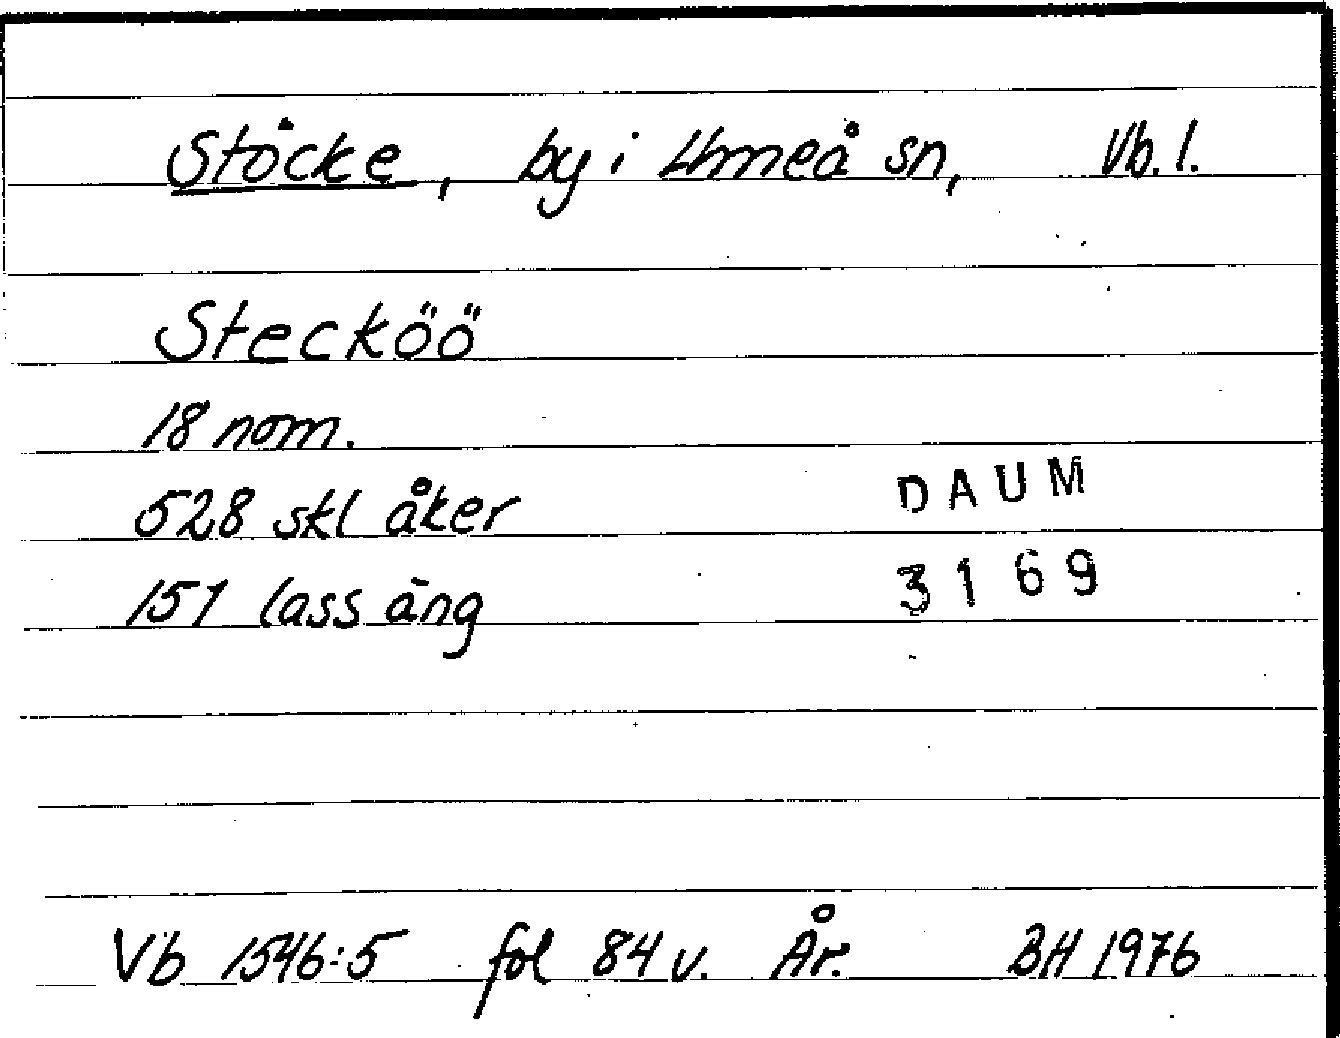 Stöcke, by i Umeå sn, Vb. l.
Stecköö
18 nom.
528 skl åker
DAUM
151 lass äng
3169
Vb 1546:5 fol 84 v. År. BH 1976